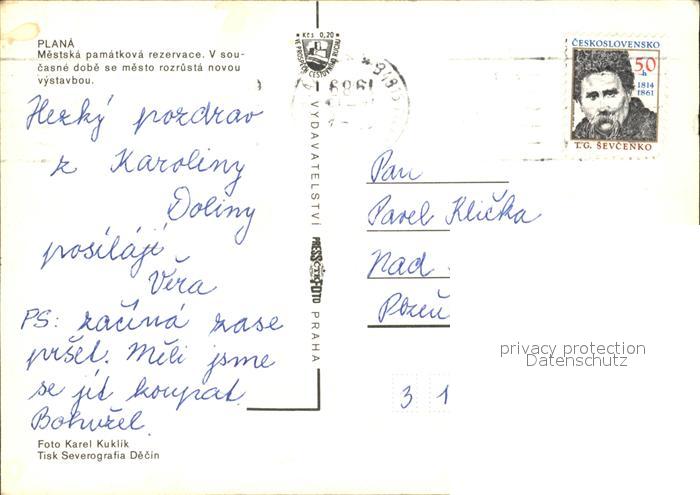 PLANÁ
Městská památková rezervace. V sou-
časné době se město rozrůstá novou
výstavbou.
Hezký pozdrav
z Karoliny
Doliny
posílájí
Věra
PS: začíná zase
pršet. Měli jsme
se jít koupat.
Bohužel.
Foto Karel Kuklík
Tisk Severografia Děčín
Kčs 0,20
VE PROSPĚCH CESTOVNÍHO RUCHU
VYDAVATELSTVÍ
PRESSFOTO
PRAHA
1989
ČESKOSLOVENSKO
50 h
1814
1861
T. G. ŠEVČENKO
Pan
Pavel Klička
Nad
Plzeň
3 1
privacy protection
Datenschutz